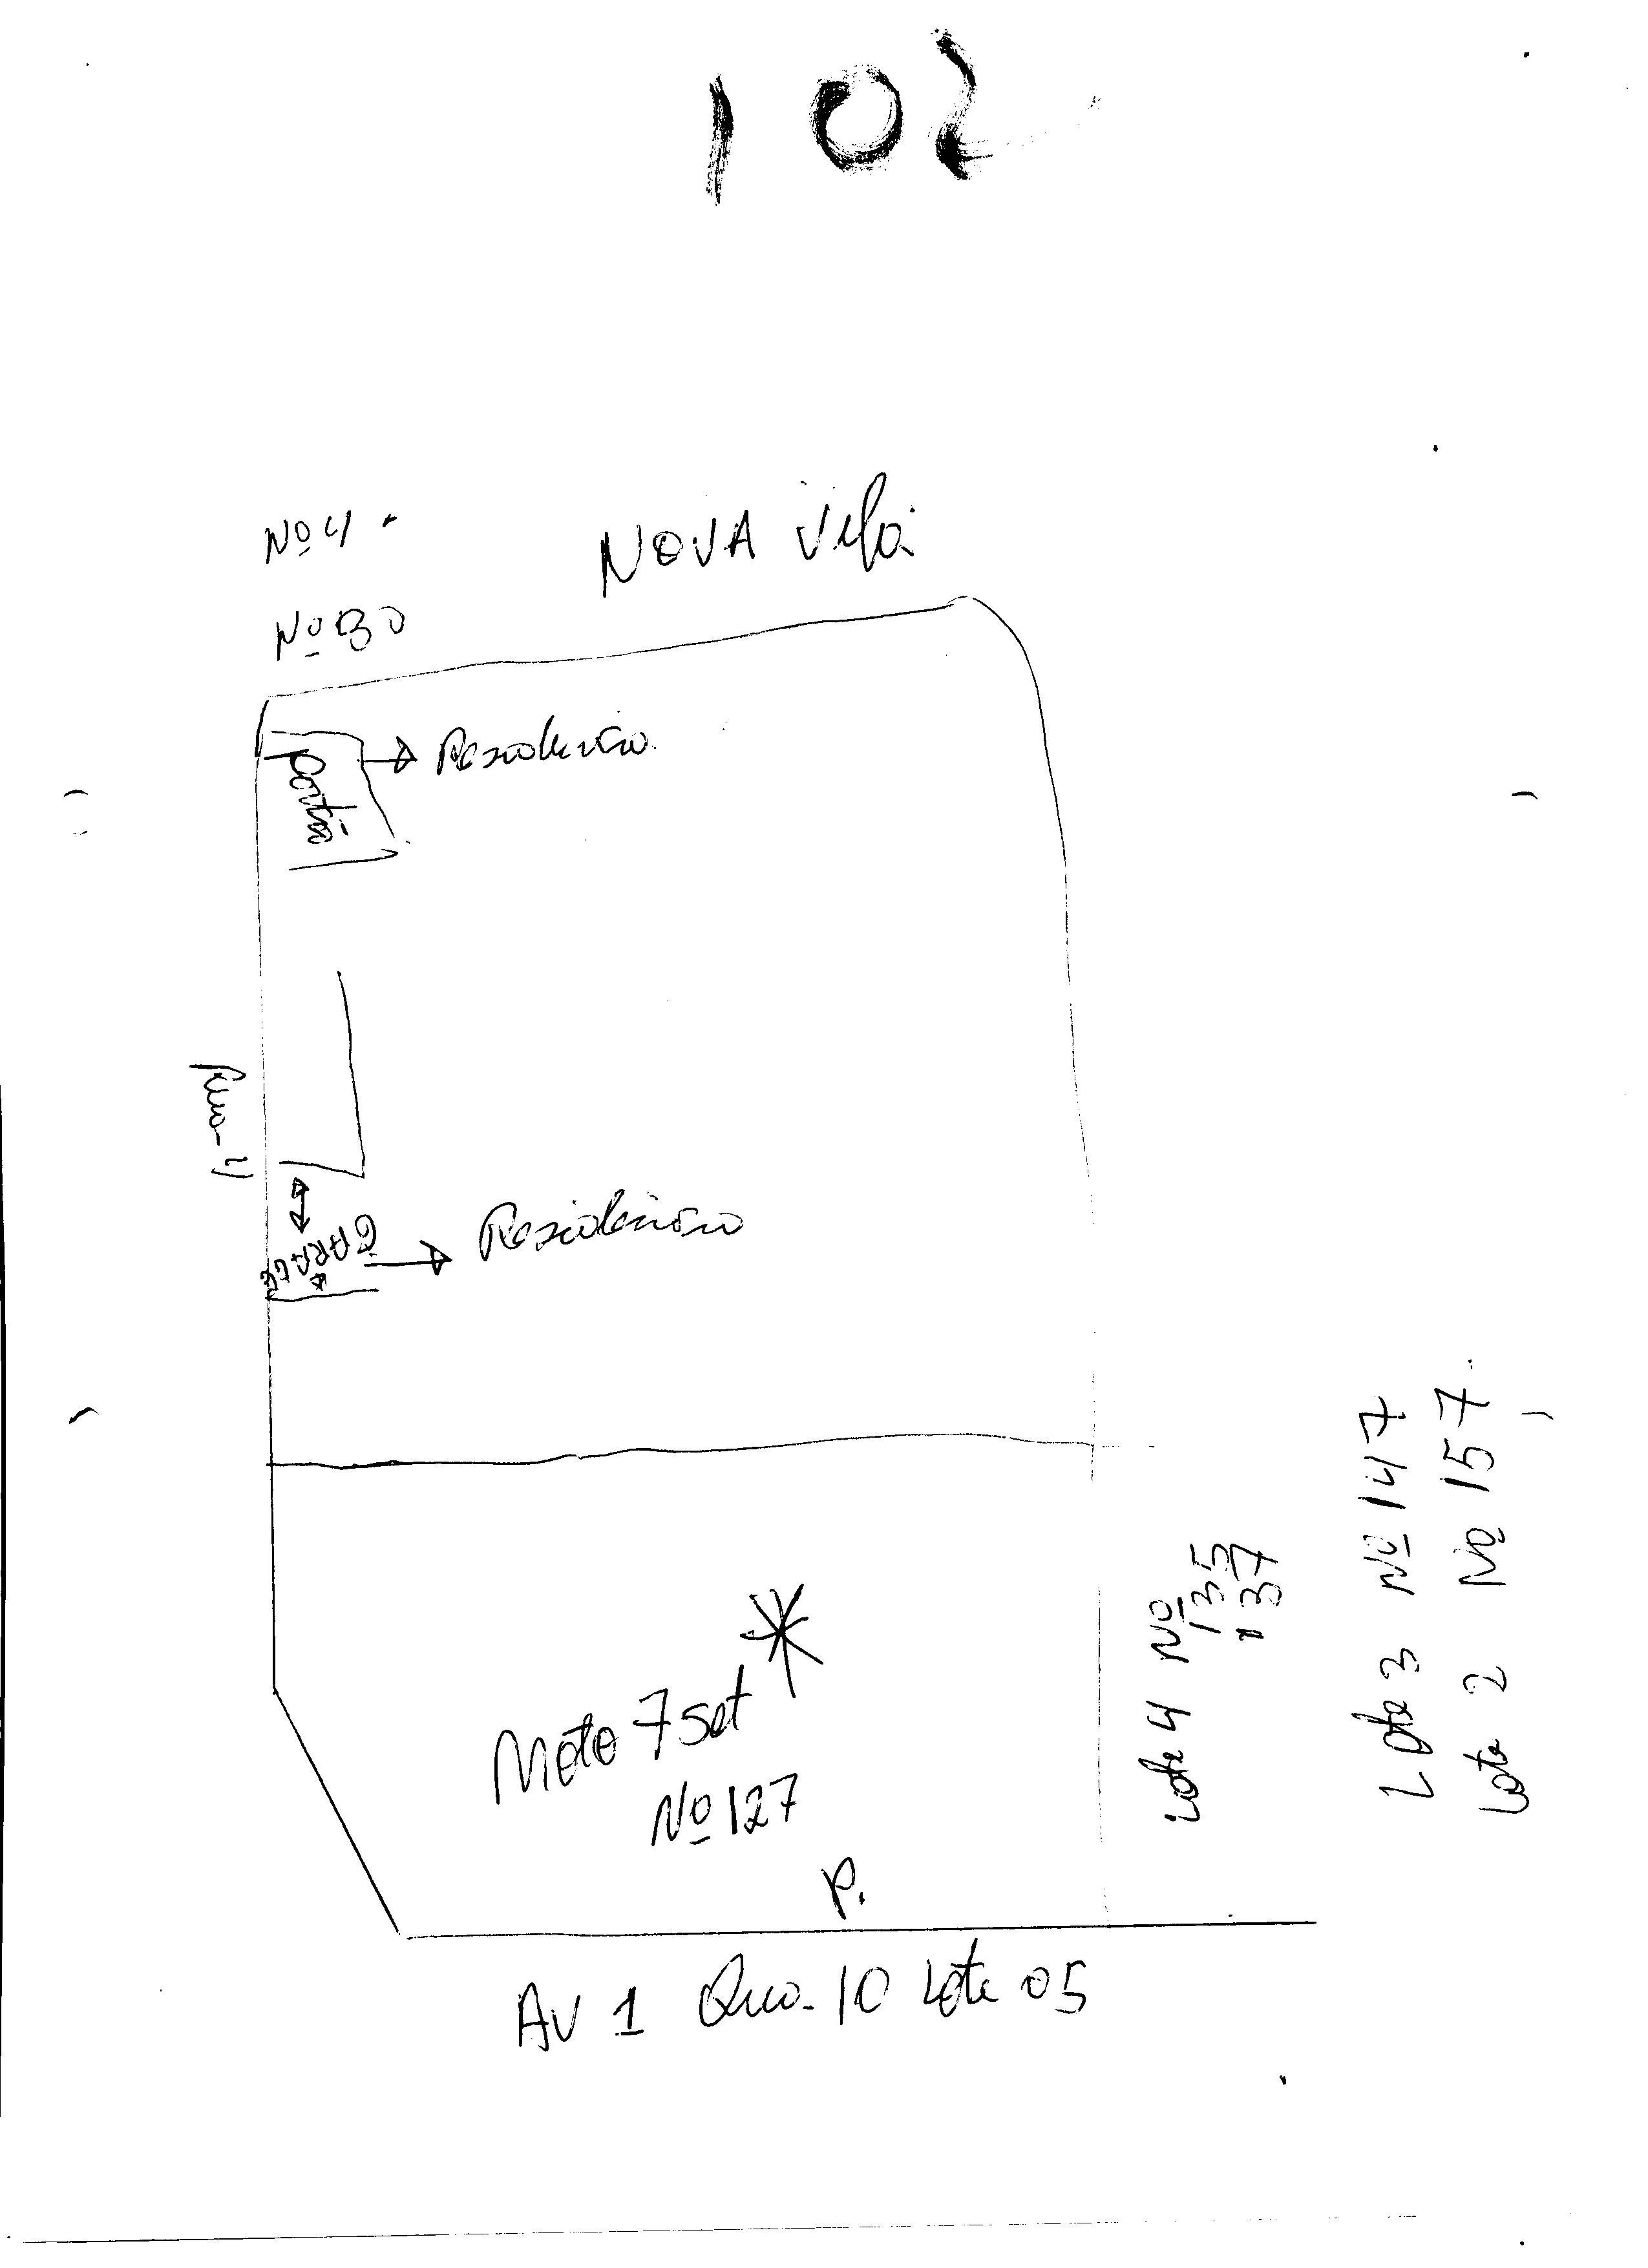 102
Nº 4
NOVA Vila
Nº 30
Residencia
portão
Rua-4
GARAGE
Residencia
Moto 7 set
Nº 127
P.
Lote 4 Nº
135
137
Lote 3 Nº 147
Lote 2 Nº 157
AV 1 Qua. 10 Lote 05